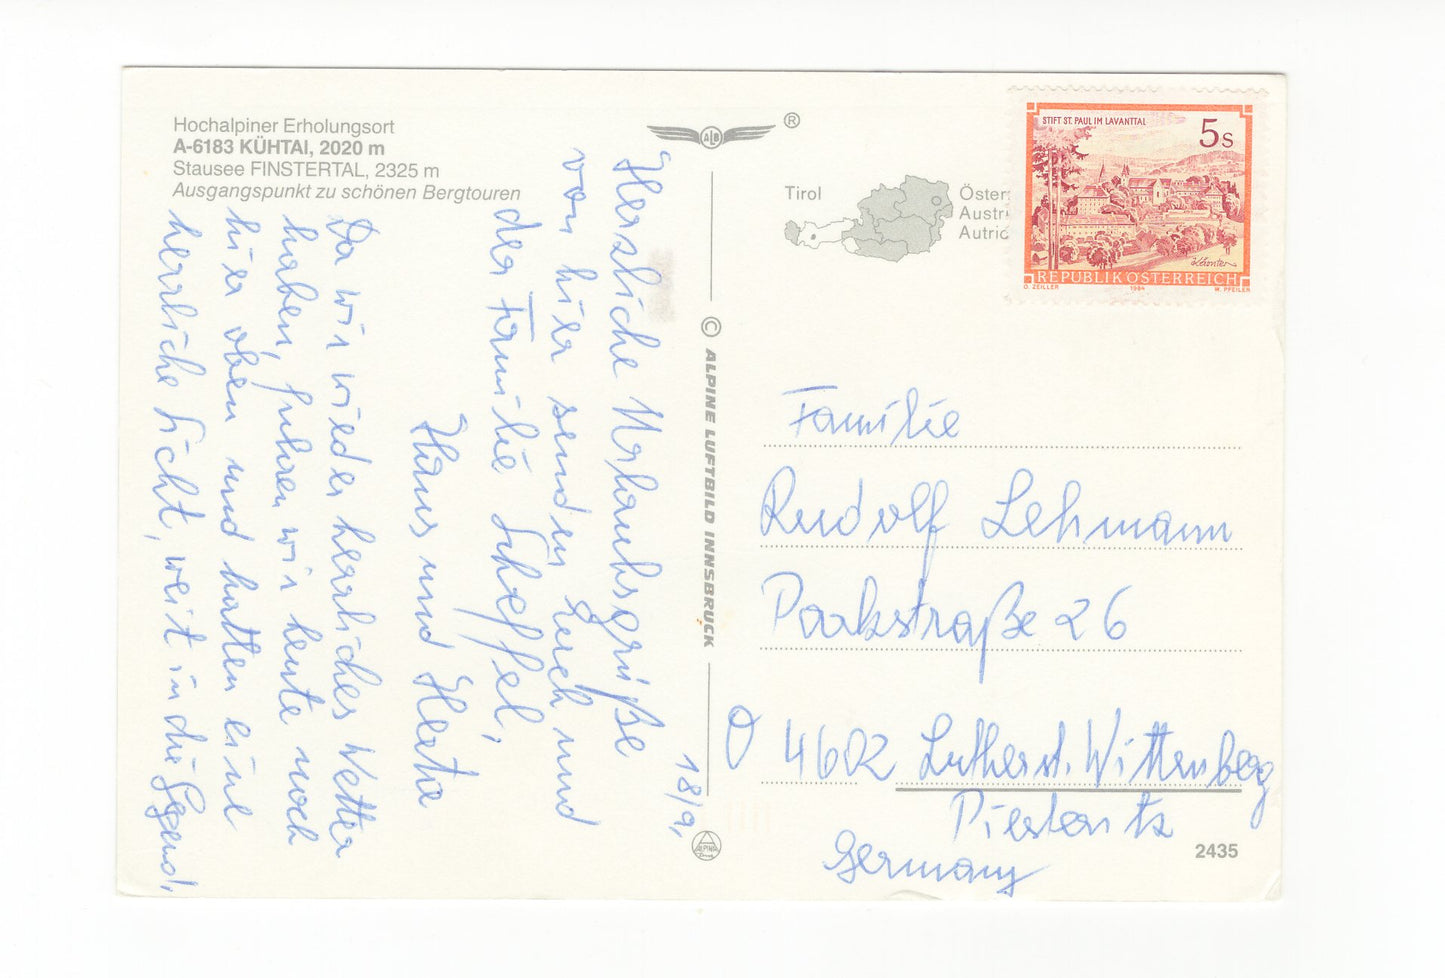 Hochalpiner Erholungsort
A-6183 KÜHTAI, 2020 m
Stausee FINSTERTAL, 2325 m
Ausgangspunkt zu schönen Bergtouren
Herzliche Urlaubsgrüße
von hier senden Euch und
der Familie Scheffel,
Hans und Herta
Da wir wieder herrliches Wetter
haben, fuhren wir heute noch
hier oben und hatten eine
herrliche Sicht, weit in die Gegend.
18/9.
ALB ®
© ALPINE LUFTBILD INNSBRUCK
ALPINA
Tirol
Öster
Austri
Autric
STIFT ST. PAUL IM LAVANTTAL
5s
Kärnten
REPUBLIK ÖSTERREICH
O. ZEILLER 1984 W. PFEILER
Familie
Rudolf Lehmann
Parkstraße 26
O 4602 Lutherst. Wittenberg
Piesteritz
Germany
2435